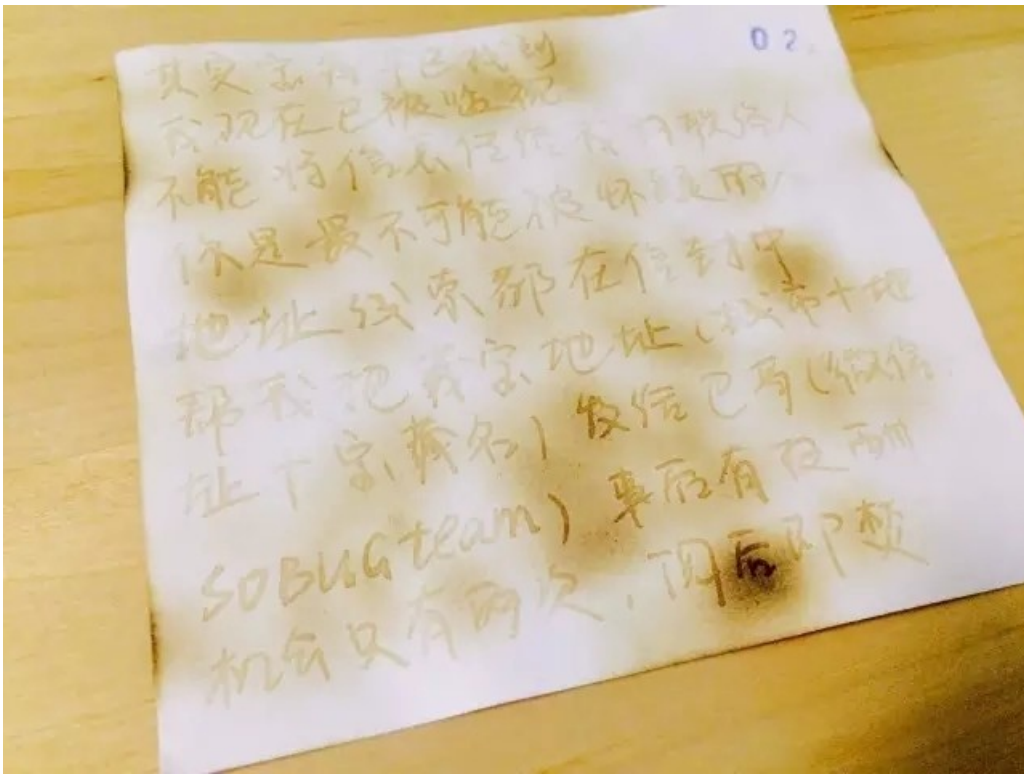 02
其实宝 已找到
我现在已被监视
不能将信息任何 联络人
你是最不可能被怀疑的人
地址线索都在信封中
帮我把藏宝地址(城市+地
址+宝藏名)发给已有(微信
SOBUGteam)事后有
机会只有两次,阅后即焚